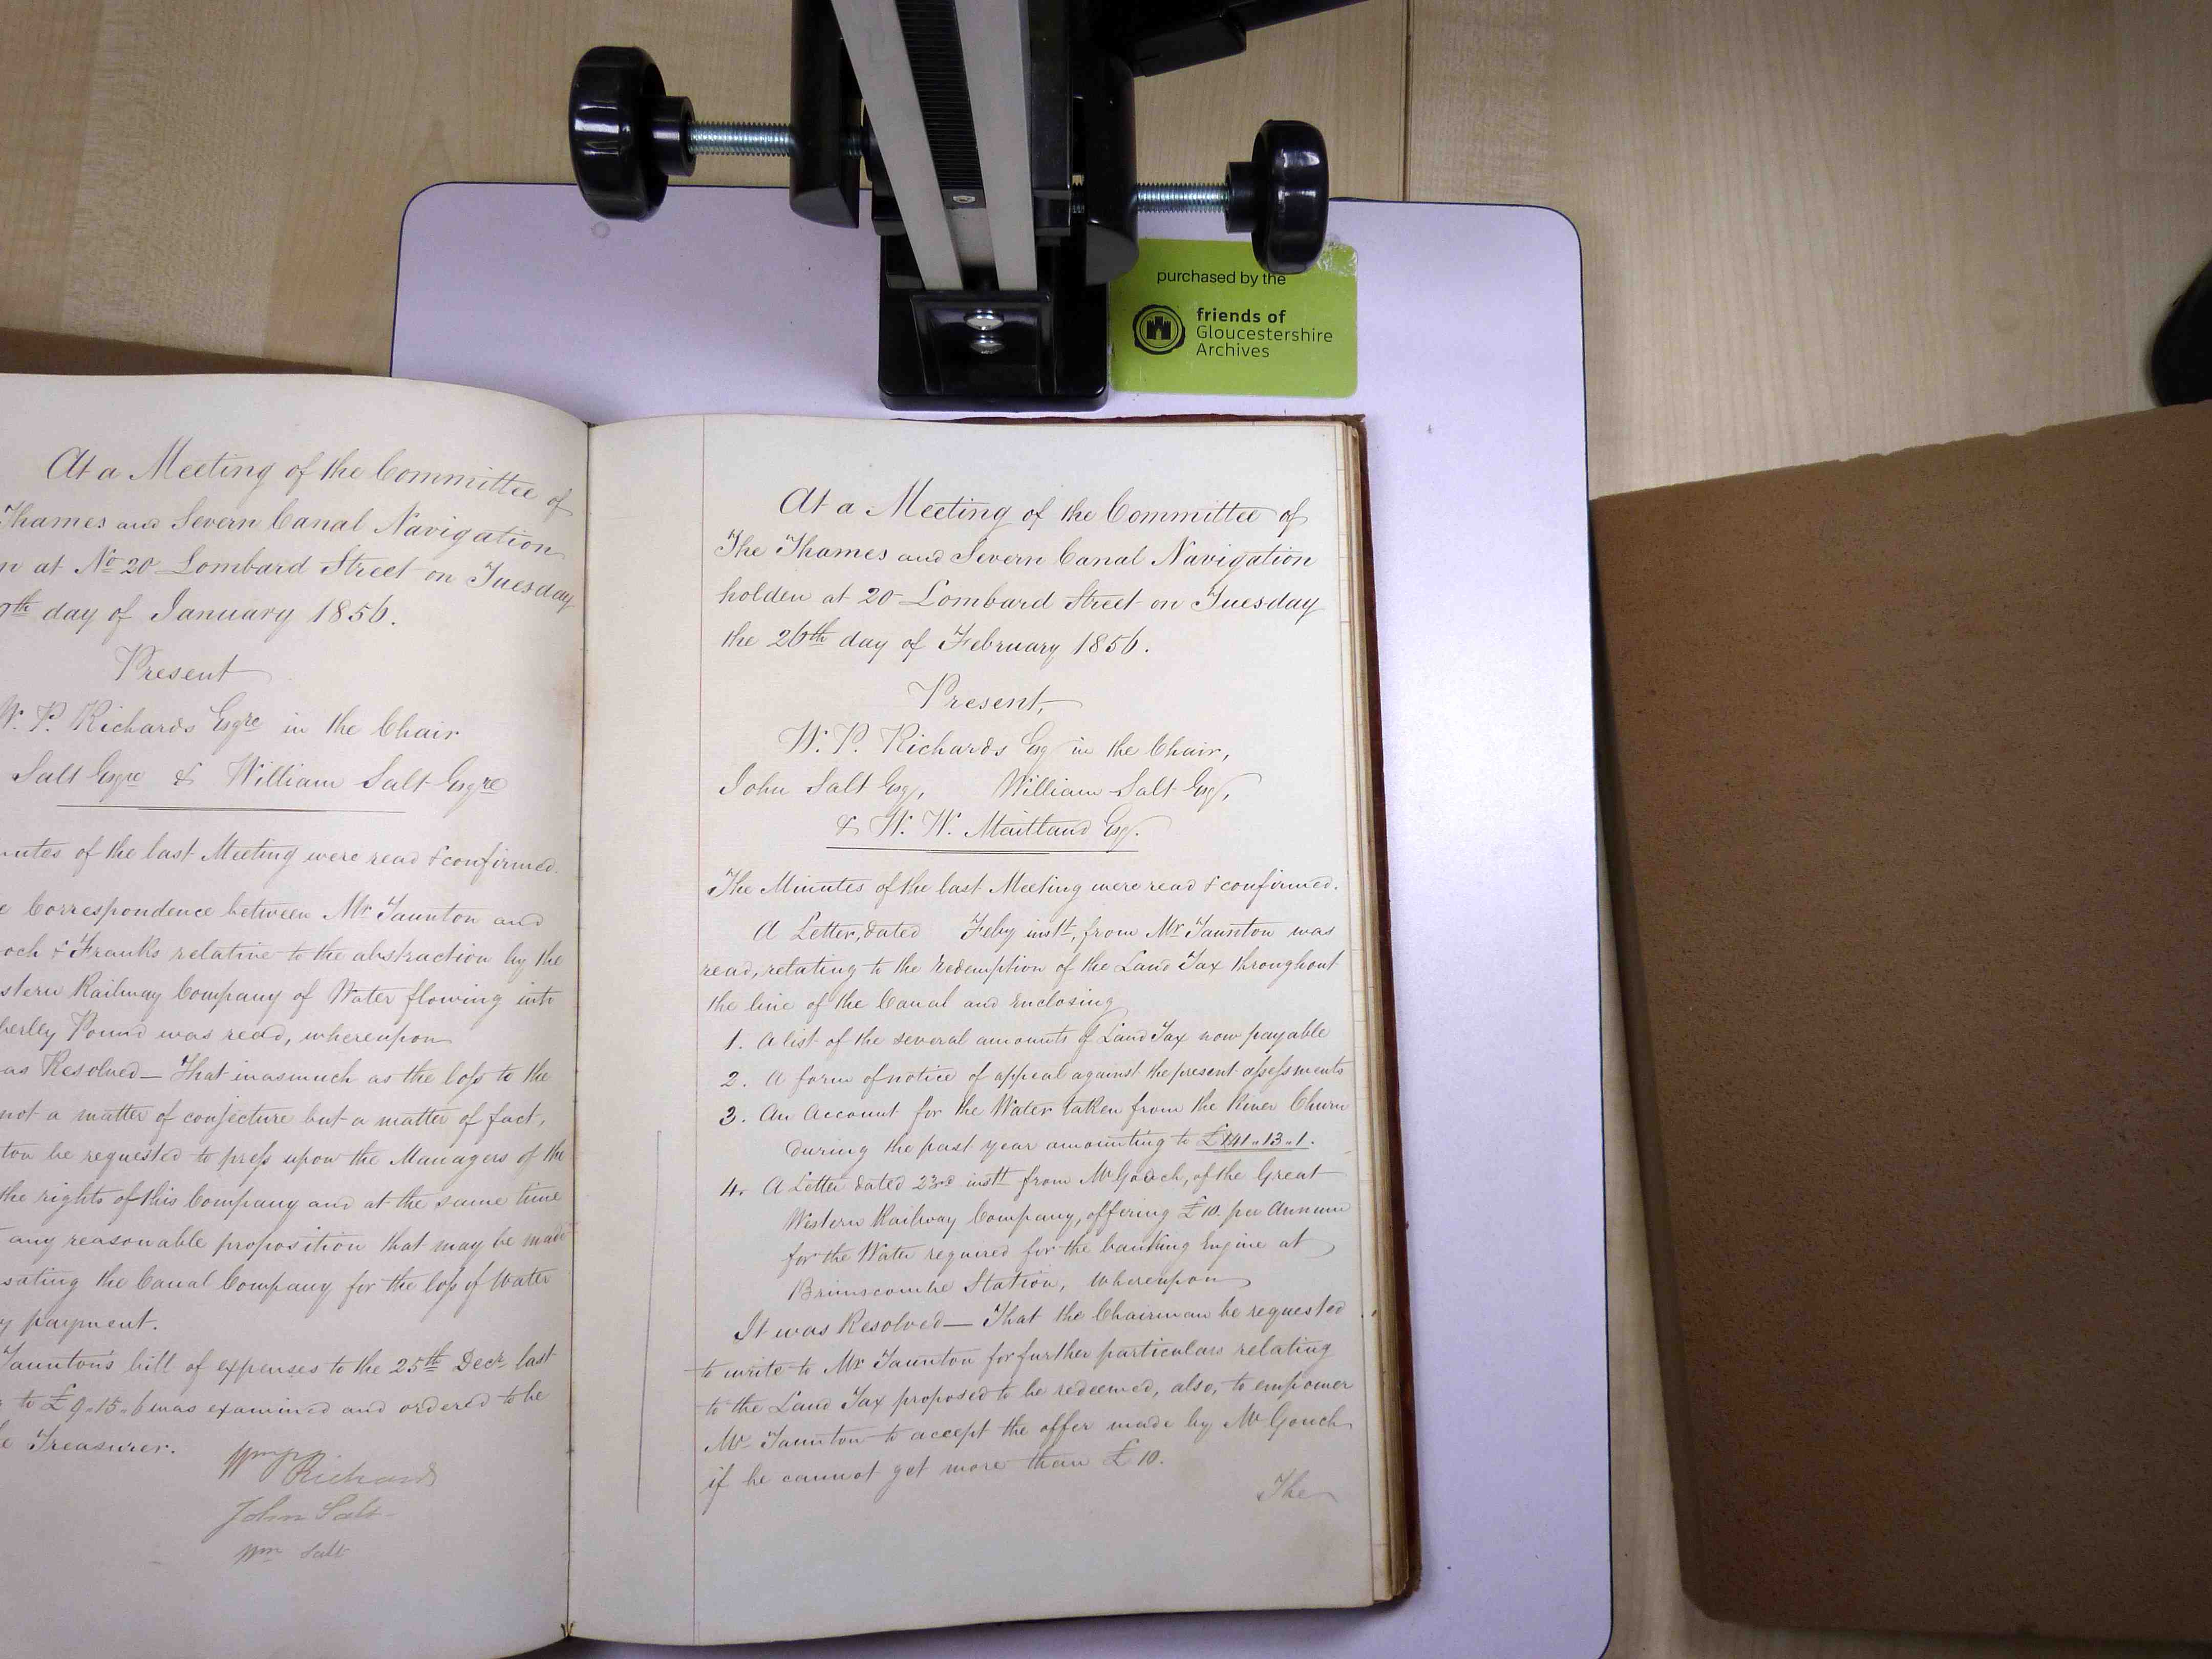 purchased by the
friends of
Gloucestershire
Archives
At a Meeting of the Committee of
Thames and Severn Canal Navigation
at No 20 Lombard Street on Tuesday
th day of January 1856.
Present
W. P. Richards Esqre in the Chair
Salt Esqre & William Salt Esqre
utes of the last Meeting were read & confirmed.
Correspondence between Mr Taunton and
och & Franks relative to the abstraction by the
stern Railway Company of Water flowing into
berley Pound was read, whereupon
as Resolved — That inasmuch as the loss to the
not a matter of conjecture but a matter of fact,
ton be requested to press upon the Managers of the
the rights of this Company and at the same time
any reasonable proposition that may be made
sating the Canal Company for the loss of Water
y payment.
Taunton's bill of expenses to the 25th Decr last
to £9.15.6 was examined and ordered to be
e Treasurer.
Wm P Richards
John Salt
Wm Salt
At a Meeting of the Committee of
The Thames and Severn Canal Navigation
holden at 20 Lombard Street on Tuesday
the 26th day of February 1856.
Present,
W. P. Richards Esq in the Chair,
John Salt Esq, William Salt Esq,
& W. W. Maitland Esq.
The Minutes of the last Meeting were read & confirmed.
A Letter, dated Feby instt, from Mr Taunton was
read, relating to the Redemption of the Land Tax throughout
the line of the Canal and Enclosing
1. A list of the several amounts of Land Tax now payable
2. A form of notice of appeal against the present assessments
3. An Account for the Water taken from the River Churn
during the past year amounting to £141.13.1.
4. A Letter dated 23rd instt from Mr Gooch, of the Great
Western Railway Company, offering £10. per Annum
for the Water required for the banking Engine at
Brimscombe Station, whereupon
It was Resolved — That the Chairman be requested
to write to Mr Taunton for further particulars relating
to the Land Tax proposed to be redeemed, also, to empower
Mr Taunton to accept the offer made by Mr Gooch
if he cannot get more than £10.
The